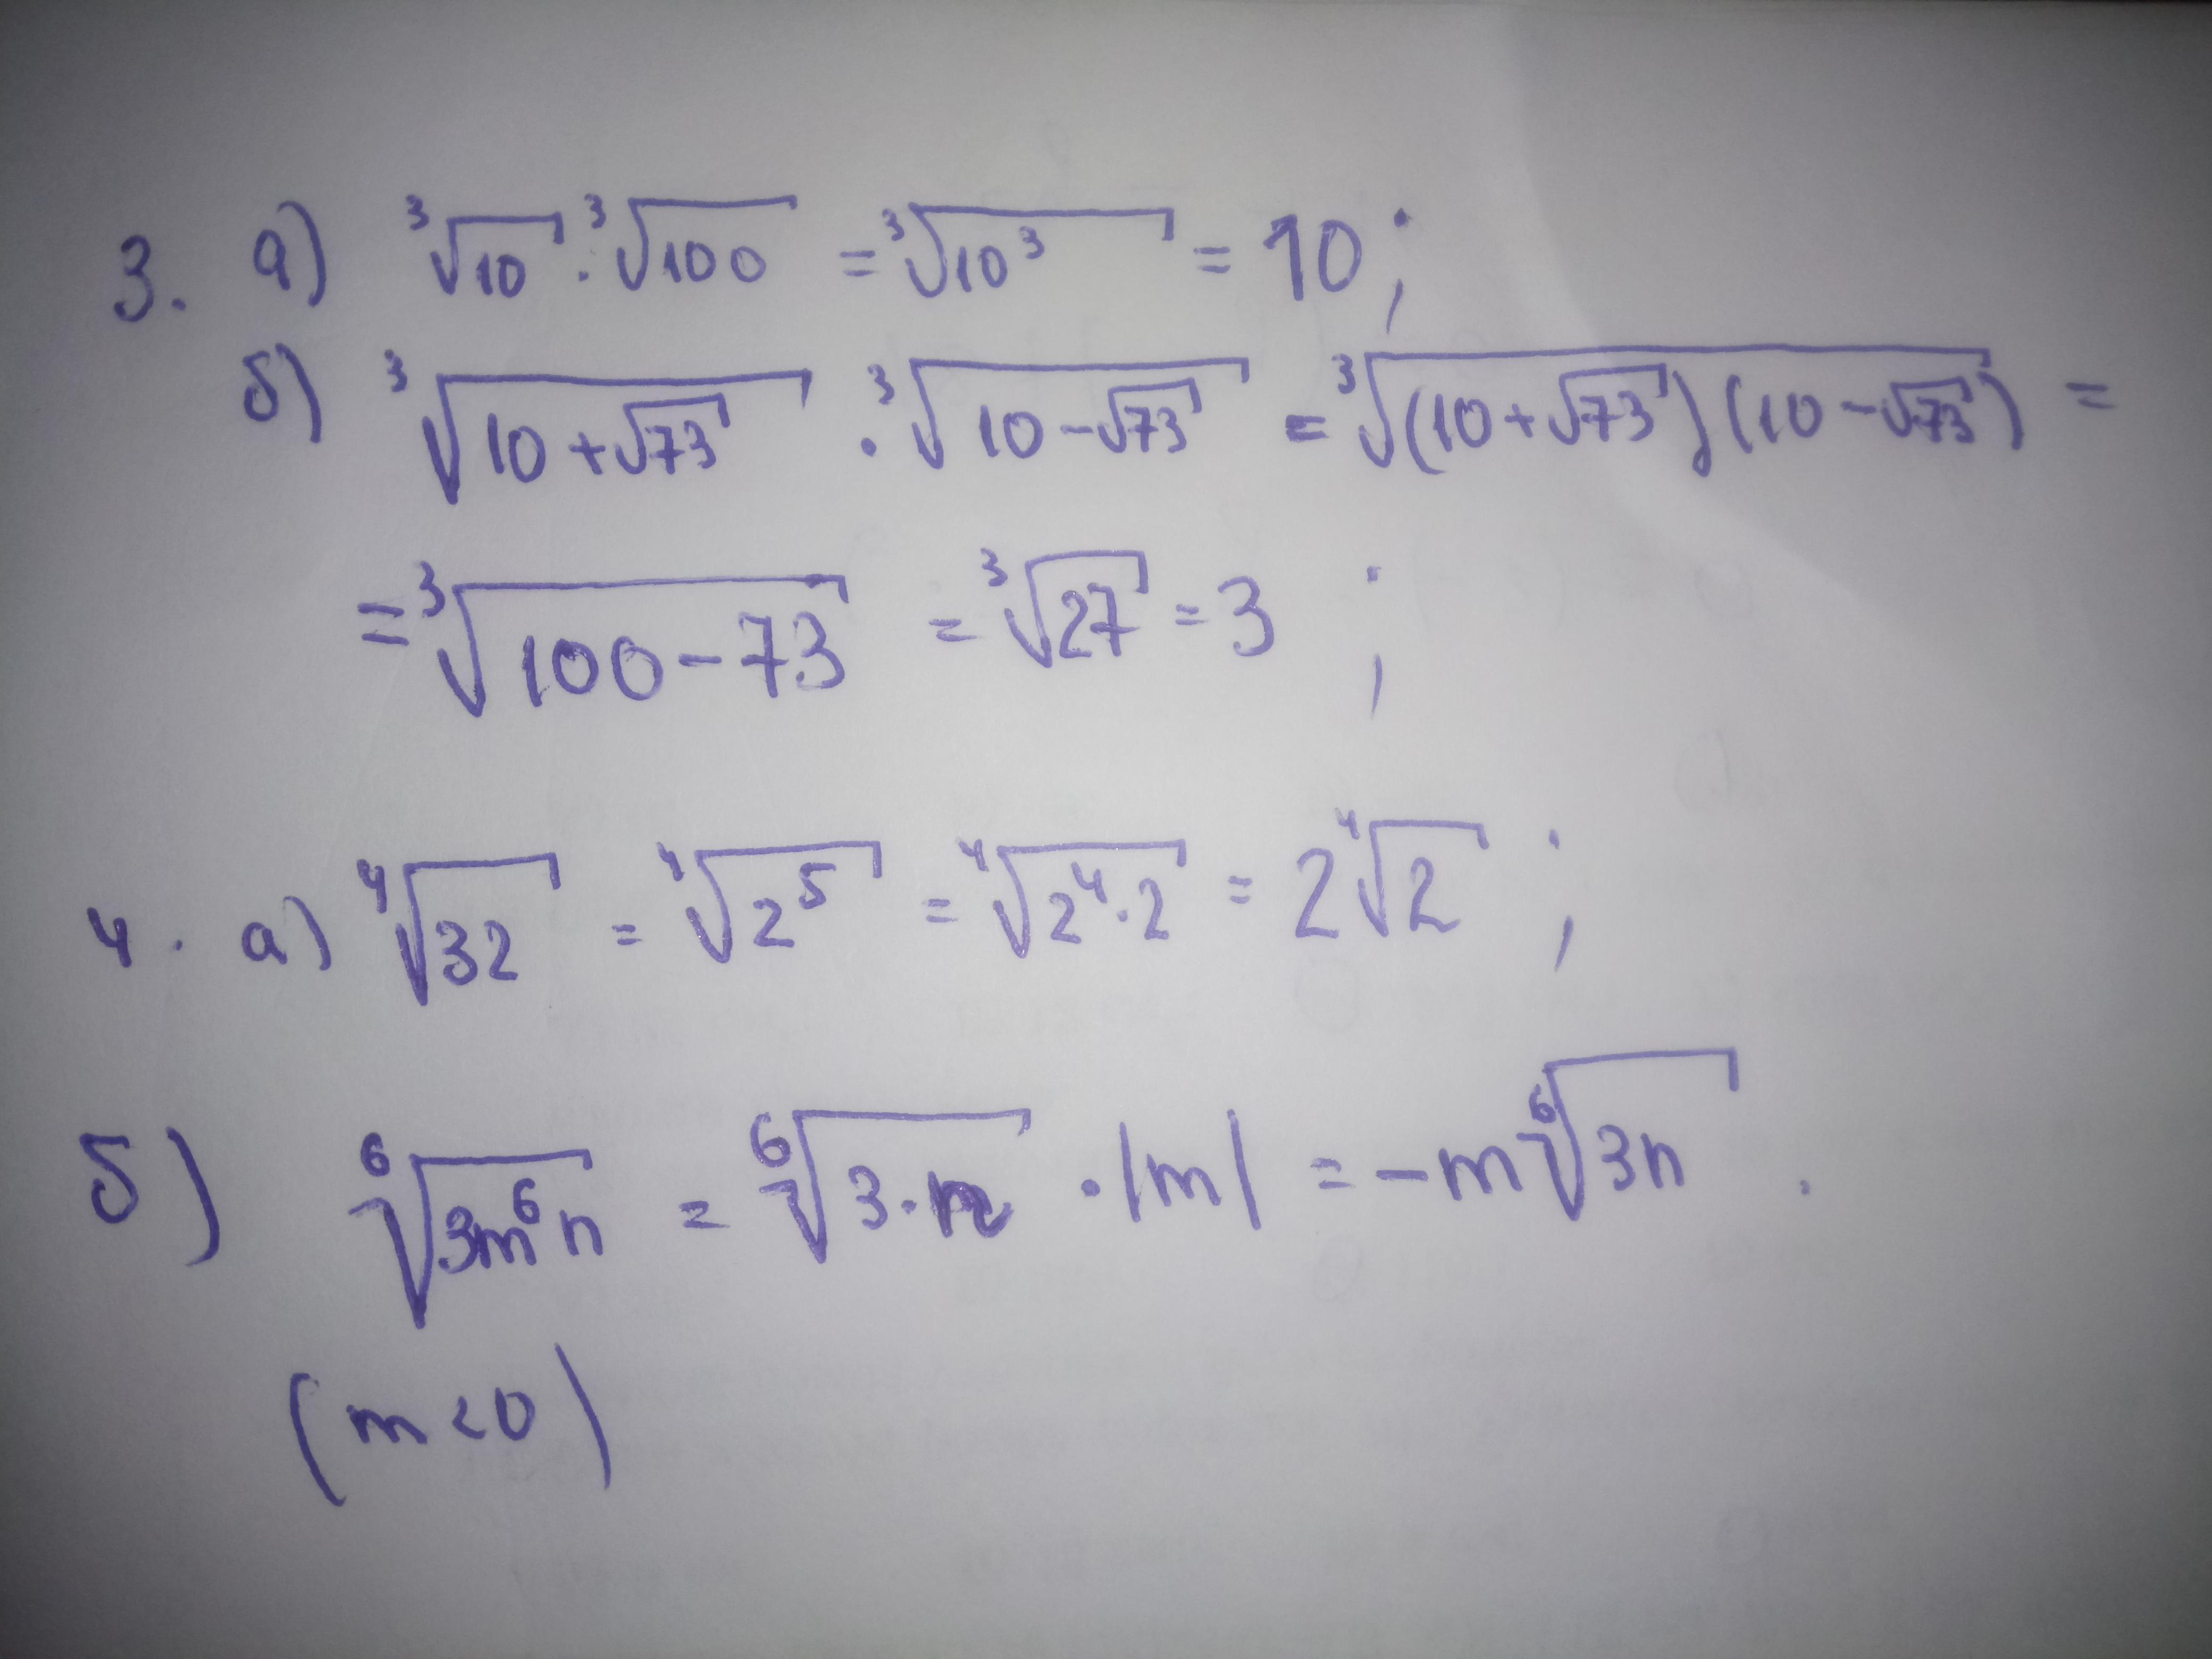 3. а) ∛10 · ∛100 = ∛10³ = 10;
б) ∛(10+√73) · ∛(10−√73) = ∛((10+√73)(10−√73)) =
= ∛(100−73) = ∛27 = 3;
4. а) ∜32 = ∜2⁵ = ∜(2⁴·2) = 2∜2;
б) ⁶√(3m⁶n) = ⁶√(3·n) · |m| = −m ⁶√(3n).
(m<0)